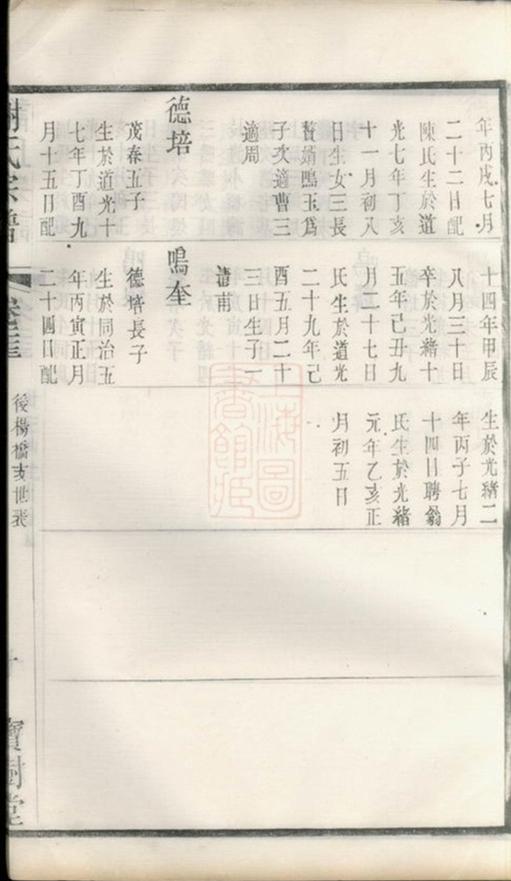 年丙戌七月
二十二日配
陳氏生於道
光七年丁亥
十一月初八
日生女三長
贅婿鳴玉爲
子次適曹三
適周
德培
茂春五子
生於道光十
七年丁酉九
月十五日配
十四年甲辰
八月三十日
卒於光緒十
五年己丑九
月二十七日
氏生於道光
二十九年己
酉五月二十
三日生子一
清甫
鳴奎
德培長子
生於同治五
年丙寅正月
二十四日配
生於光緒二
年丙子七月
十四日聘翁
氏生於光緒
元年乙亥正
月初五日
謝氏宗譜
後楊橋支世表
十
寶樹堂
上海圖書館藏